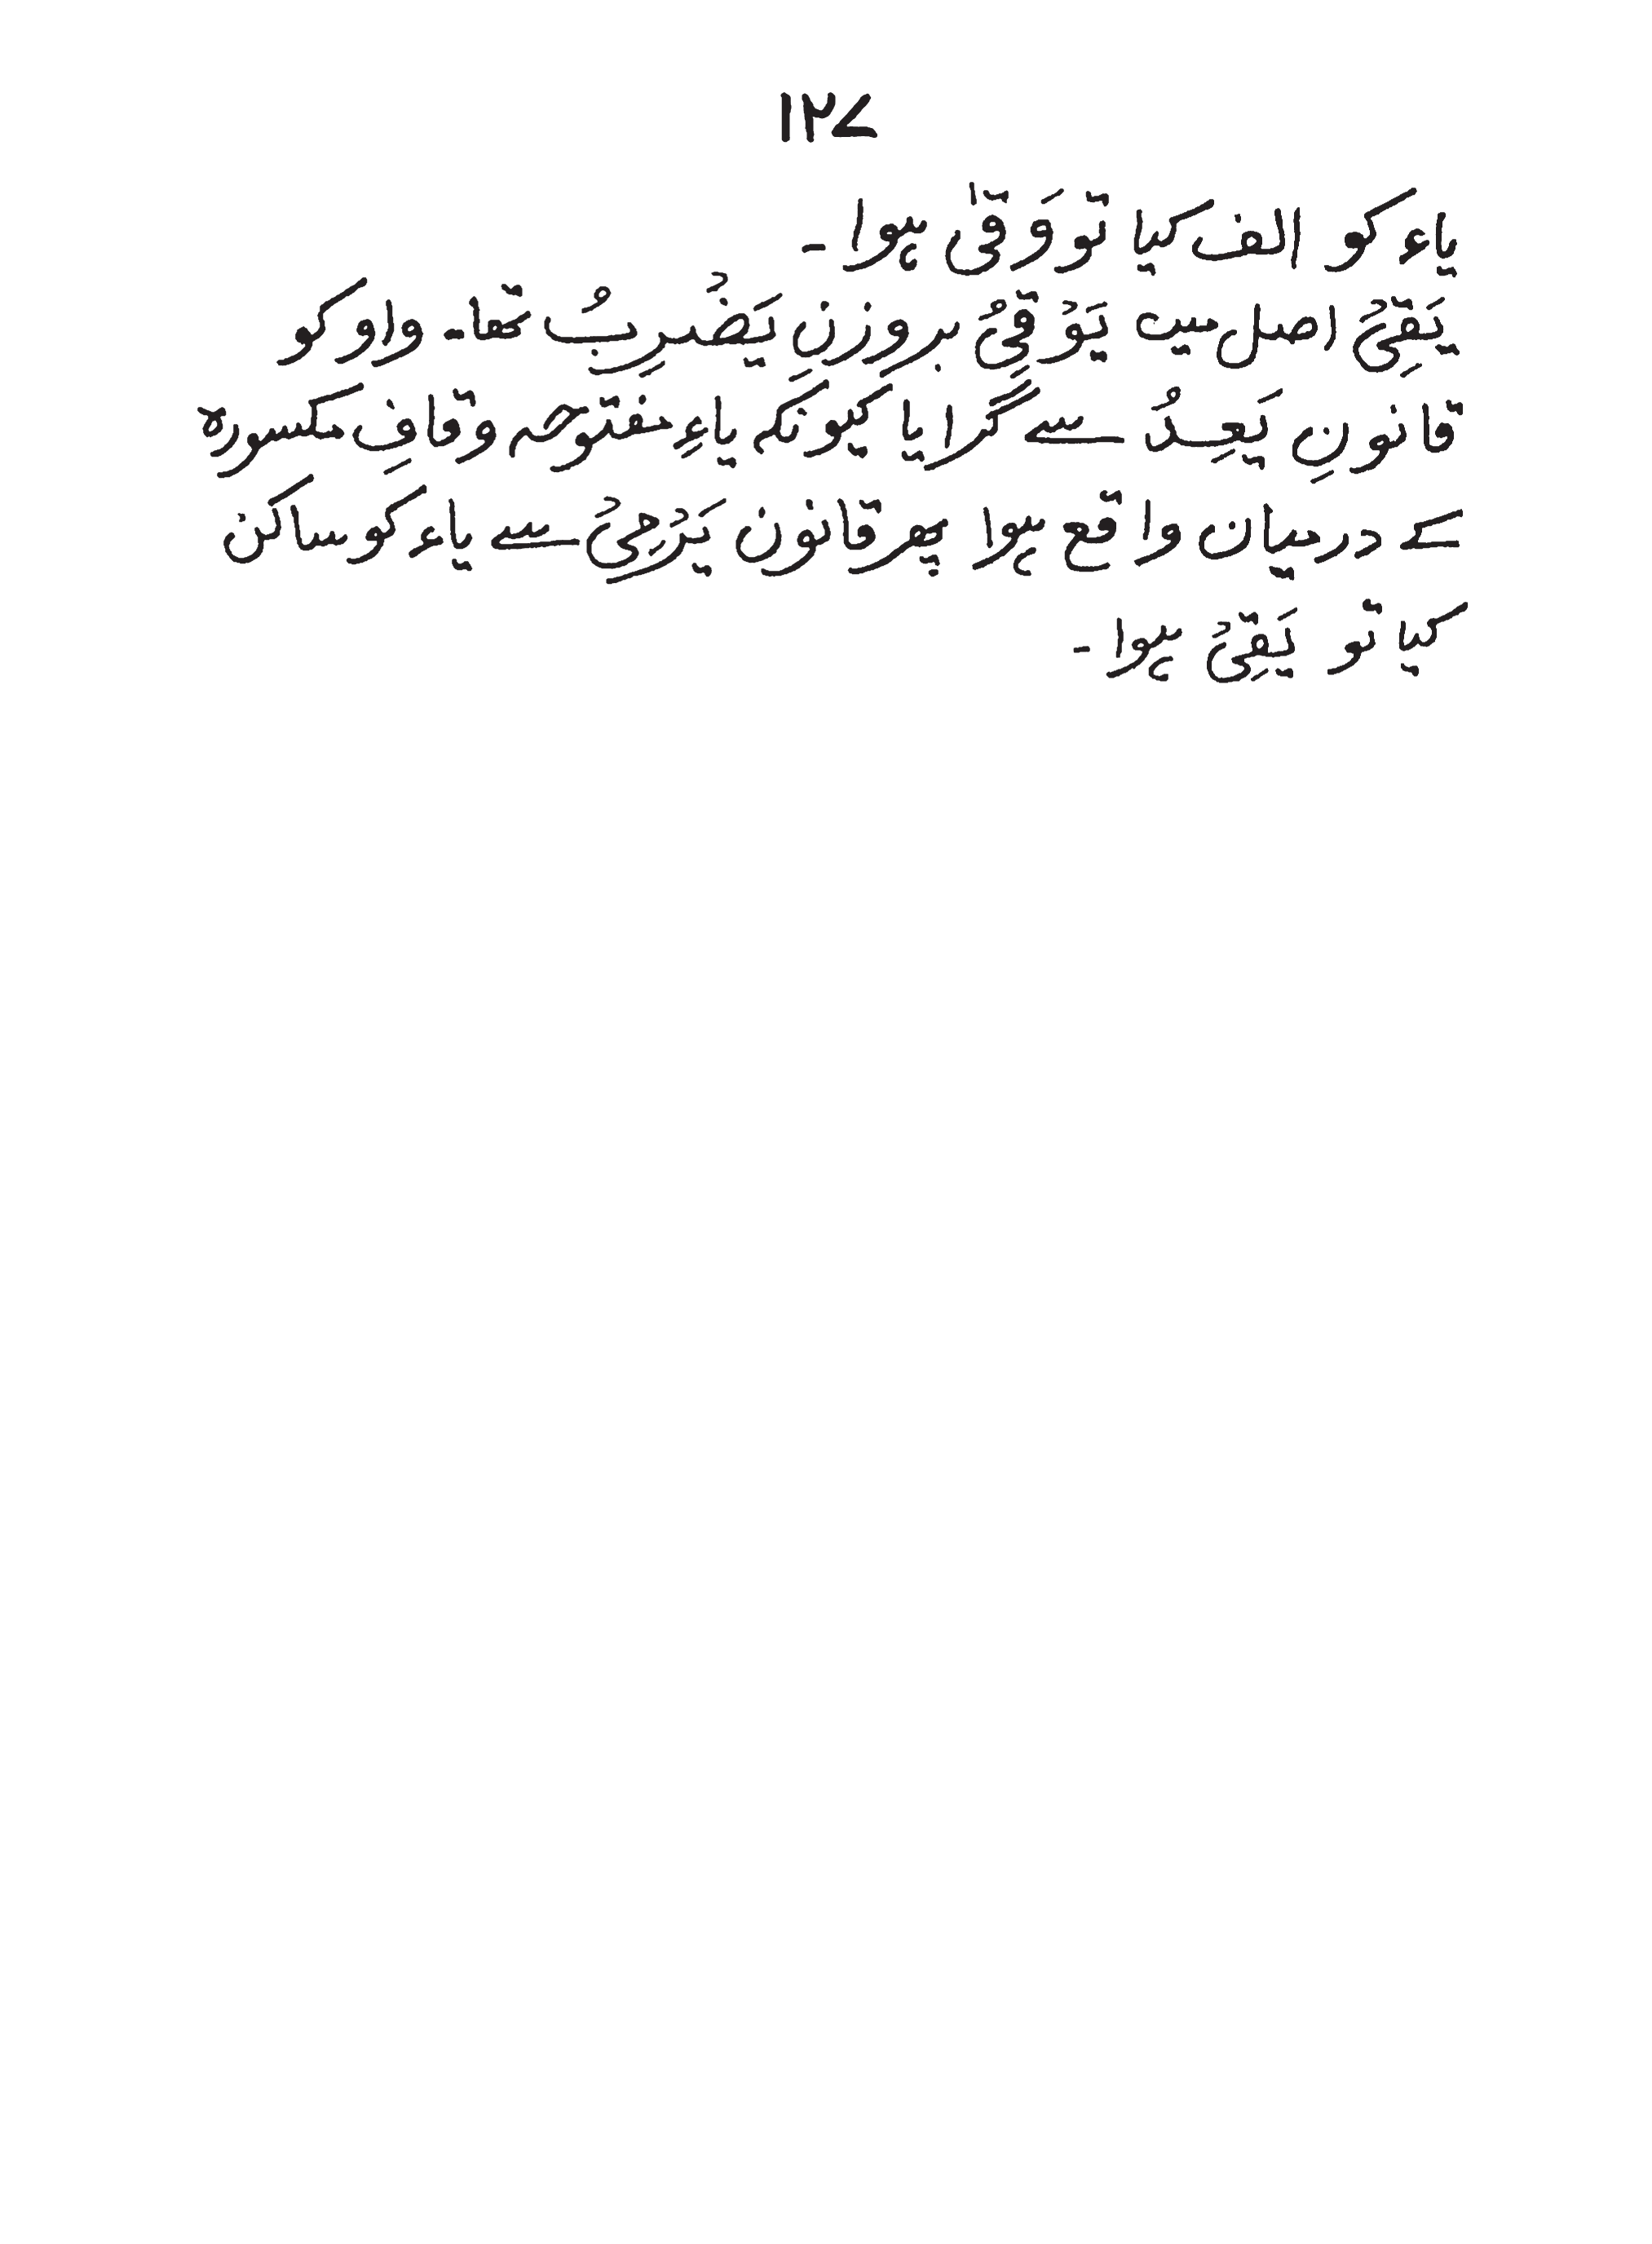 ۱۲۷
یاء کو الف کیا تو وَقیٰ ہوا ۔
یَقِیْ اصل میں یَوْقِیُ بروزنِ یَضْرِبُ تھا۔ واو کو
قانونِ یَعِدُ سے گرایا کیونکہ یاءِ مفتوحہ وقافِ مکسورہ
کے درمیان واقع ہوا پھر قانون یَرْمِیْ سے یاء کو ساکن
کیا تو یَقِیْ ہوا ۔